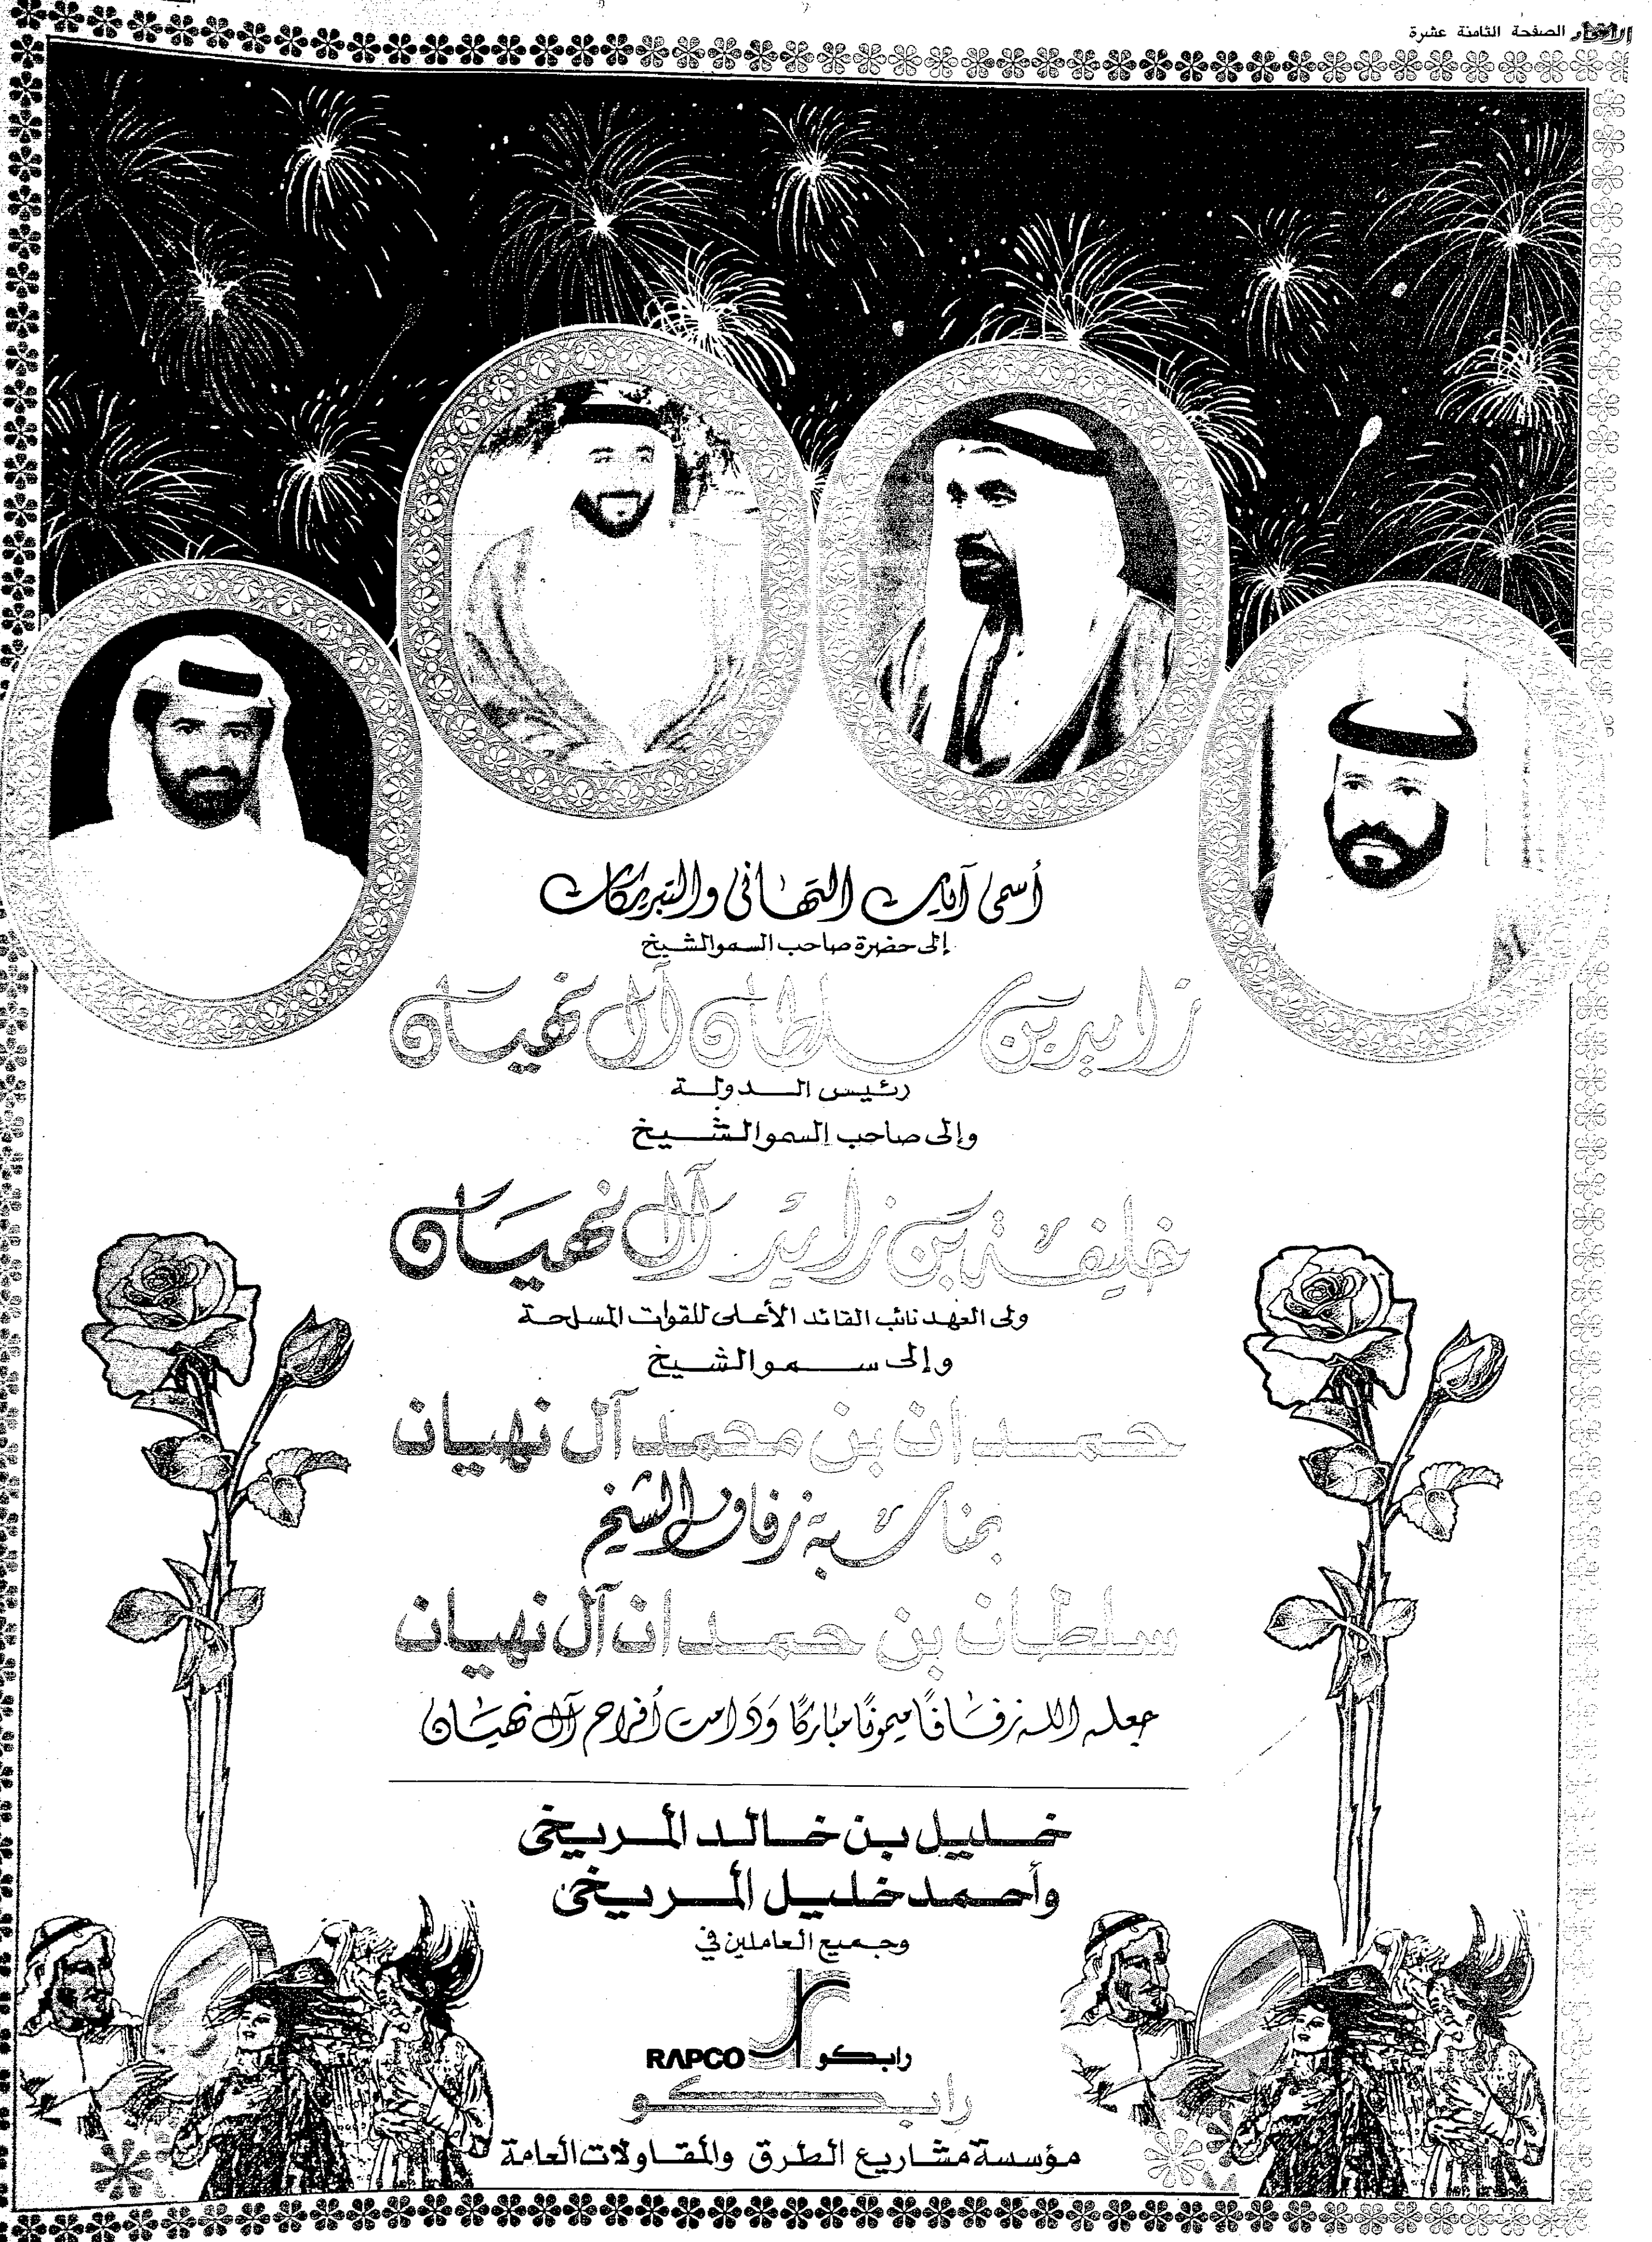 الصفحة الثامنة عشرة
أسمى آيات التهانى والتبريكات
إلى حضرة صاحب السمو الشيخ
زايد بن سلطان آل نهيان
رئيس الدولة
وإلى صاحب السمو الشيخ
خليفة بن زايد آل نهيان
ولى العهد نائب القائد الأعلى للقوات المسلحة
وإلى سمو الشيخ
حمدان بن محمد آل نهيان
بمناسبة زفاف الشيخ
سلطان بن حمدان آل نهيان
جعله الله زفافًا ميمونًا مباركًا وَدَامت أفراح آل نهيان
خليل بن خالد المريخى
وأحمد خليل المريخى
وجميع العاملين في
RAPCO رابكو
رابكو
مؤسسة مشاريع الطرق والمقاولات العامة